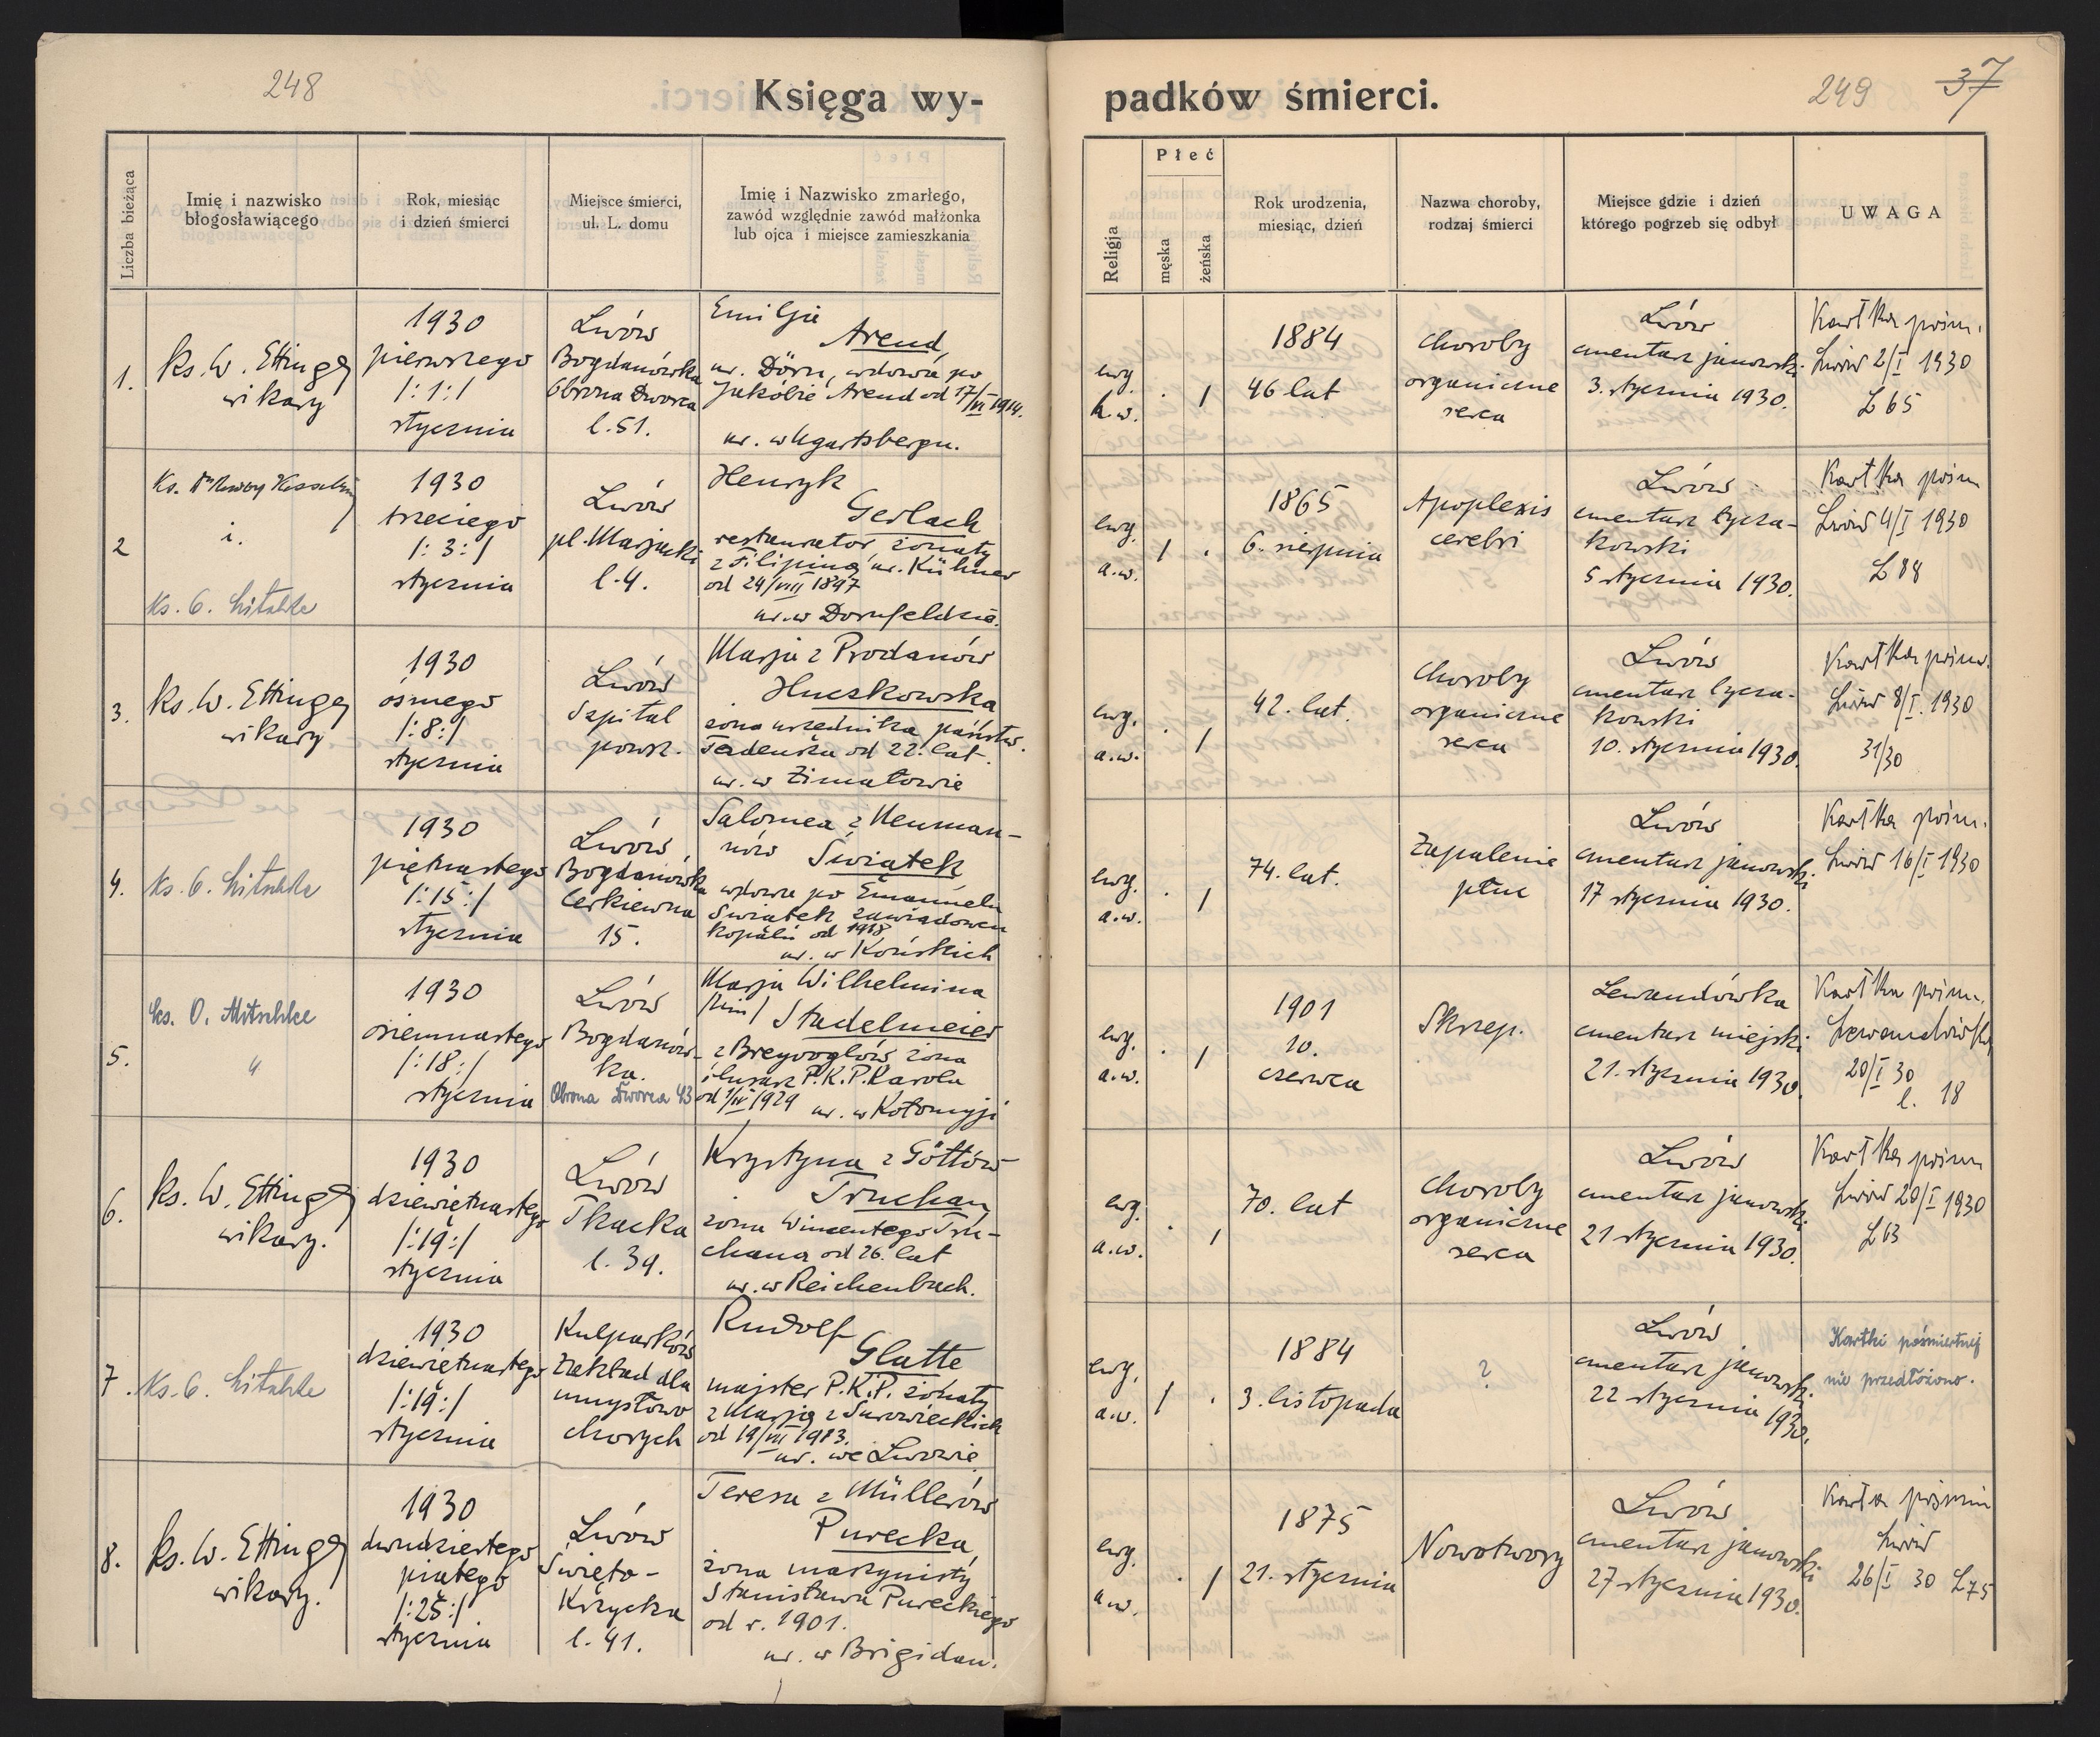 248
Księga wy-
padków śmierci.
249
37
Liczba bieżąca
Imię i nazwisko
błogosławiącego
Rok, miesiąc
i dzień śmierci
Miejsce śmierci,
ul. L. domu
Imię i Nazwisko zmarłego,
zawód względnie zawód małżonka
lub ojca i miejsce zamieszkania
Religja
Płeć
męska
żeńska
Rok urodzenia,
miesiąc, dzień
Nazwa choroby,
rodzaj śmierci
Miejsce gdzie i dzień
którego pogrzeb się odbył
UWAGA
1.
ks. W. Ettinger
wikary
1930
pierwszego
/:1:/
stycznia
Lwów
Bogdanówka
Obrona Dworca
l. 51.
Emilja
Arend
ur. Dörn, wdowa po
Jakóbie Arend od 17/VI 1914.
ur. w Ugartsbergu.
ewg.
h.w.
. /
1884
46 lat
choroby
organiczne
serca
Lwów
cmentarz janowski
3. stycznia 1930.
Kartka pośm.
Lwów 2/I 1930
L 65
2
Ks. Dr
i.
Ks. O. Mitschke
1930
trzeciego
/:3:/
stycznia
Lwów
pl. Marjacki
l. 4.
Henryk
Gerlach
restaurator żonaty
z Filipiną ur. Kühner
od 24/VIII 1897
ur. w Dornfeldzie.
ewg.
a.w.
/ .
1865
6. sierpnia
Apoplexis
cerebri
Lwów
cmentarz łycza-
kowski
5 stycznia 1930.
Kartka pośm
Lwów 4/I 1930
L 88
3.
ks. W. Ettinger
wikary
1930
ósmego
/:8:/
stycznia
Lwów
Szpital
powsz.
Marja z Prodanów
Huczkowska
żona urzędnika państw.
Tadeusza od 22. lat.
ur. w
ewg.
a.w.
. /
42. lat.
choroby
organiczne
serca
Lwów
cmentarz łycza-
kowski
10. stycznia 1930.
Kartka pośm.
Lwów 8/I. 1930
31/30
4.
Ks. O. Mitschke
1930
piętnastego
/:15:/
stycznia
Lwów
Bogdanówka
Cerkiewna
15.
Salomea z Neuman-
nów Świątek
wdowa po Emanuelu
Świątek zawiadowcu
kopalń od 1918
ur. w Końskich
ewg.
a.w.
. /
74. lat.
Zapalenie
płuc
Lwów
cmentarz janowski
17 stycznia 1930.
Kartka pośm.
Lwów 16/I 1930
5.
ks. O. Mitschke
"
1930
osiemnastego
/:18:/
stycznia
Lwów
Bogdanów-
ka.
Obrona Dworca 43
Marja Wilhelmina
Stadelmeier
z Breyvoglów żona
ślusarz P.K.P. Karola
ur. w Kołomyji
ewg.
a.w.
. /
1901
10.
czerwca
Skrzep.
Lewandówka
cmentarz miejski
21. stycznia 1930.
Kartka pośm.
Lewandówka
20/I 30
l. 18
6.
ks. W. Ettinger
wikary.
1930
dziewiętnastego
/:19:/
stycznia
Lwów
Tkacka
l. 39.
Krystyna z Göttów
Truchan
żona Wincentego Tru-
chana od 26. lat
ur. w Reichenbach.
ewg.
a.w.
. /
70. lat
choroby
organiczne
serca
Lwów
cmentarz janowski
21 stycznia 1930.
Kartka pośm
Lwów 20/I 1930
L 63
7.
Ks. O. Mitschke
1930
dziewiętnastego
/:19:/
stycznia
Kulparków
Zakład dla
umysłowo
chorych
Rudolf
Glatte
majster P.K.P. żonaty
z Marją z Surowieckich
od 19/VIII 1913.
ur. we Lwowie
ewg.
a.w.
/ .
1884
3. listopada
?
Lwów
cmentarz janowski
22 stycznia 1930.
Kartki pośmiertnej
nie przedłożono.
8.
ks. W. Ettinger
wikary.
1930
dwudziestego
piątego
/:25:/
stycznia
Lwów
Święto-
Krzyska
l. 41.
Teresa z Müllerów
Purecka
żona maszynisty
Stanisława Pureckiego
od r. 1901.
ur. w Brigidau.
ewg.
a.w.
. /
1875
21. stycznia
Nowotwory
Lwów
cmentarz janowski
27 stycznia 1930.
Karta pośmin
Lwów
26/I 30 L75